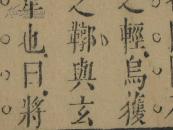 之輕烏獲
之 與玄
也曰將